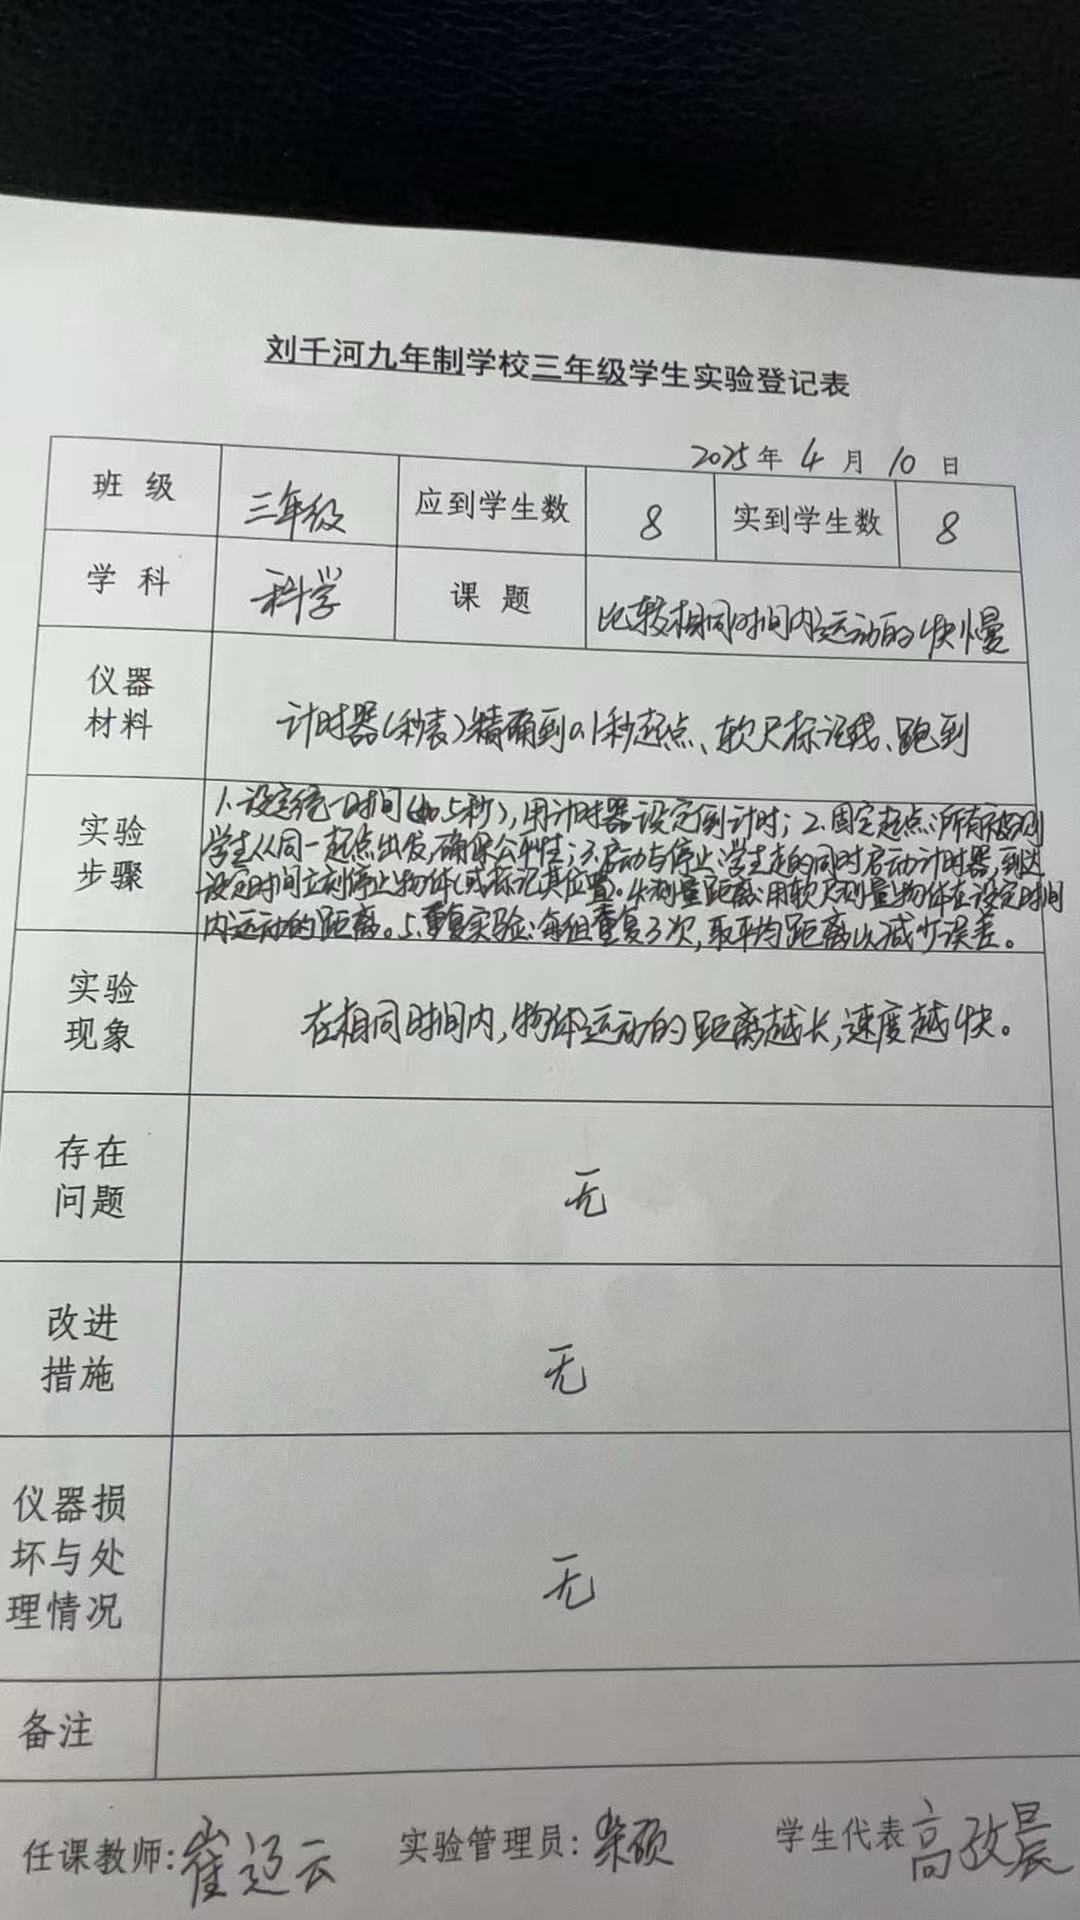 刘千河九年制学校三年级学生实验登记表
2025年 4 月 10 日
班 级 三年级 应到学生数 8 实到学生数 8
学 科 科学 课 题 比较相同时间内运动的快慢
仪器
材料
计时器(秒表)精确到0.1秒起点、软尺标记线、跑到
实验
步骤
1.设定统一时间(如5秒),用计时器设定倒计时;2.固定起点:所有被测
学生从同一起点出发,确保公平性;3.启动与停止:学生走的同时启动计时器,到达
设定时间立刻停止物体(或标记其位置)。4.测量距离:用软尺测量物体在设定时间
内运动的距离。5.重复实验:每组重复3次,取平均距离以减少误差。
实验
现象
在相同时间内,物体运动的距离越长,速度越快。
存在
问题
无
改进
措施
无
仪器损
坏与处
理情况
无
备注
任课教师:崔迎云 实验管理员:柴硕 学生代表 高政晨